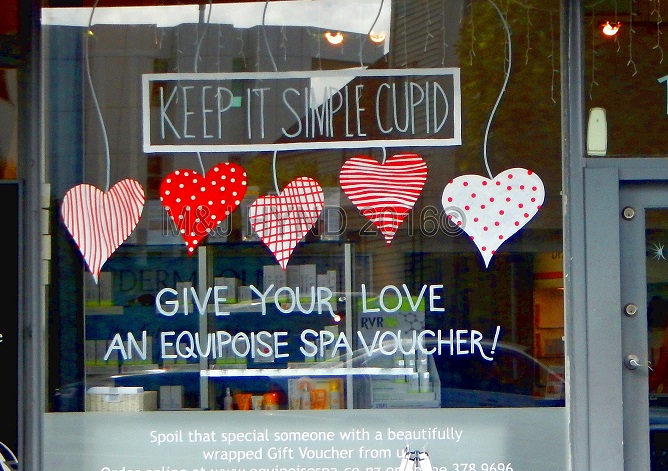 KEEP IT SIMPLE CUPID
M&J LYND 2016©
GIVE YOUR LOVE
AN EQUIPOISE SPA VOUCHER!
DERMALOGICA
RVR90
Spoil that special someone with a beautifully
wrapped Gift Voucher from us
Order online at www.equipoisespa.co.nz or phone 378 9696